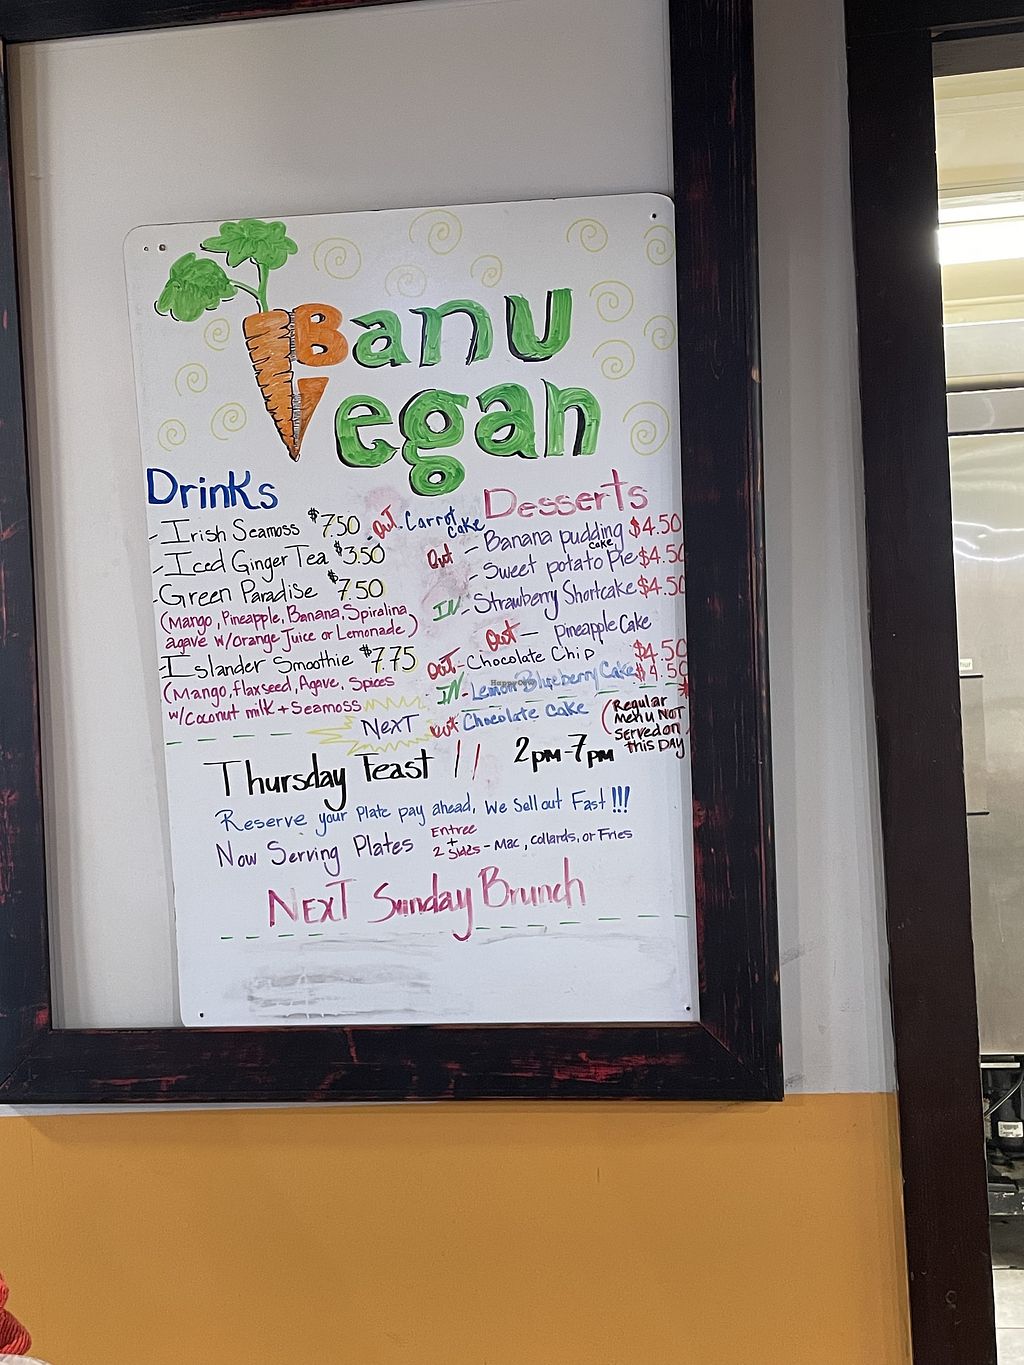 Banu
Vegan
Drinks
- Irish Seamoss $7.50
- Iced Ginger Tea $3.50
- Green Paradise $7.50
(Mango, Pineapple, Banana, Spiralina,
agave w/orange Juice or Lemonade)
- Islander Smoothie $7.75
(Mango, flaxseed, Agave, Spices
w/Coconut milk + Seamoss
Desserts
out - Carrot cake
out - Banana pudding cake $4.50
- Sweet potato Pie $4.50
IN - Strawberry Shortcake $4.50
out - Pineapple Cake
out - Chocolate Chip $4.50
IN - Lemon Blueberry Cake $4.50
out Chocolate cake
HappyCow
NexT
Thursday Feast // 2pm-7pm
(Regular
Menu NOT
Served on
this DAY)
Reserve your Plate pay ahead, We Sell out Fast!!!
Now Serving Plates Entree
+
2 Sides - Mac, collards, or Fries
NexT Sunday Brunch